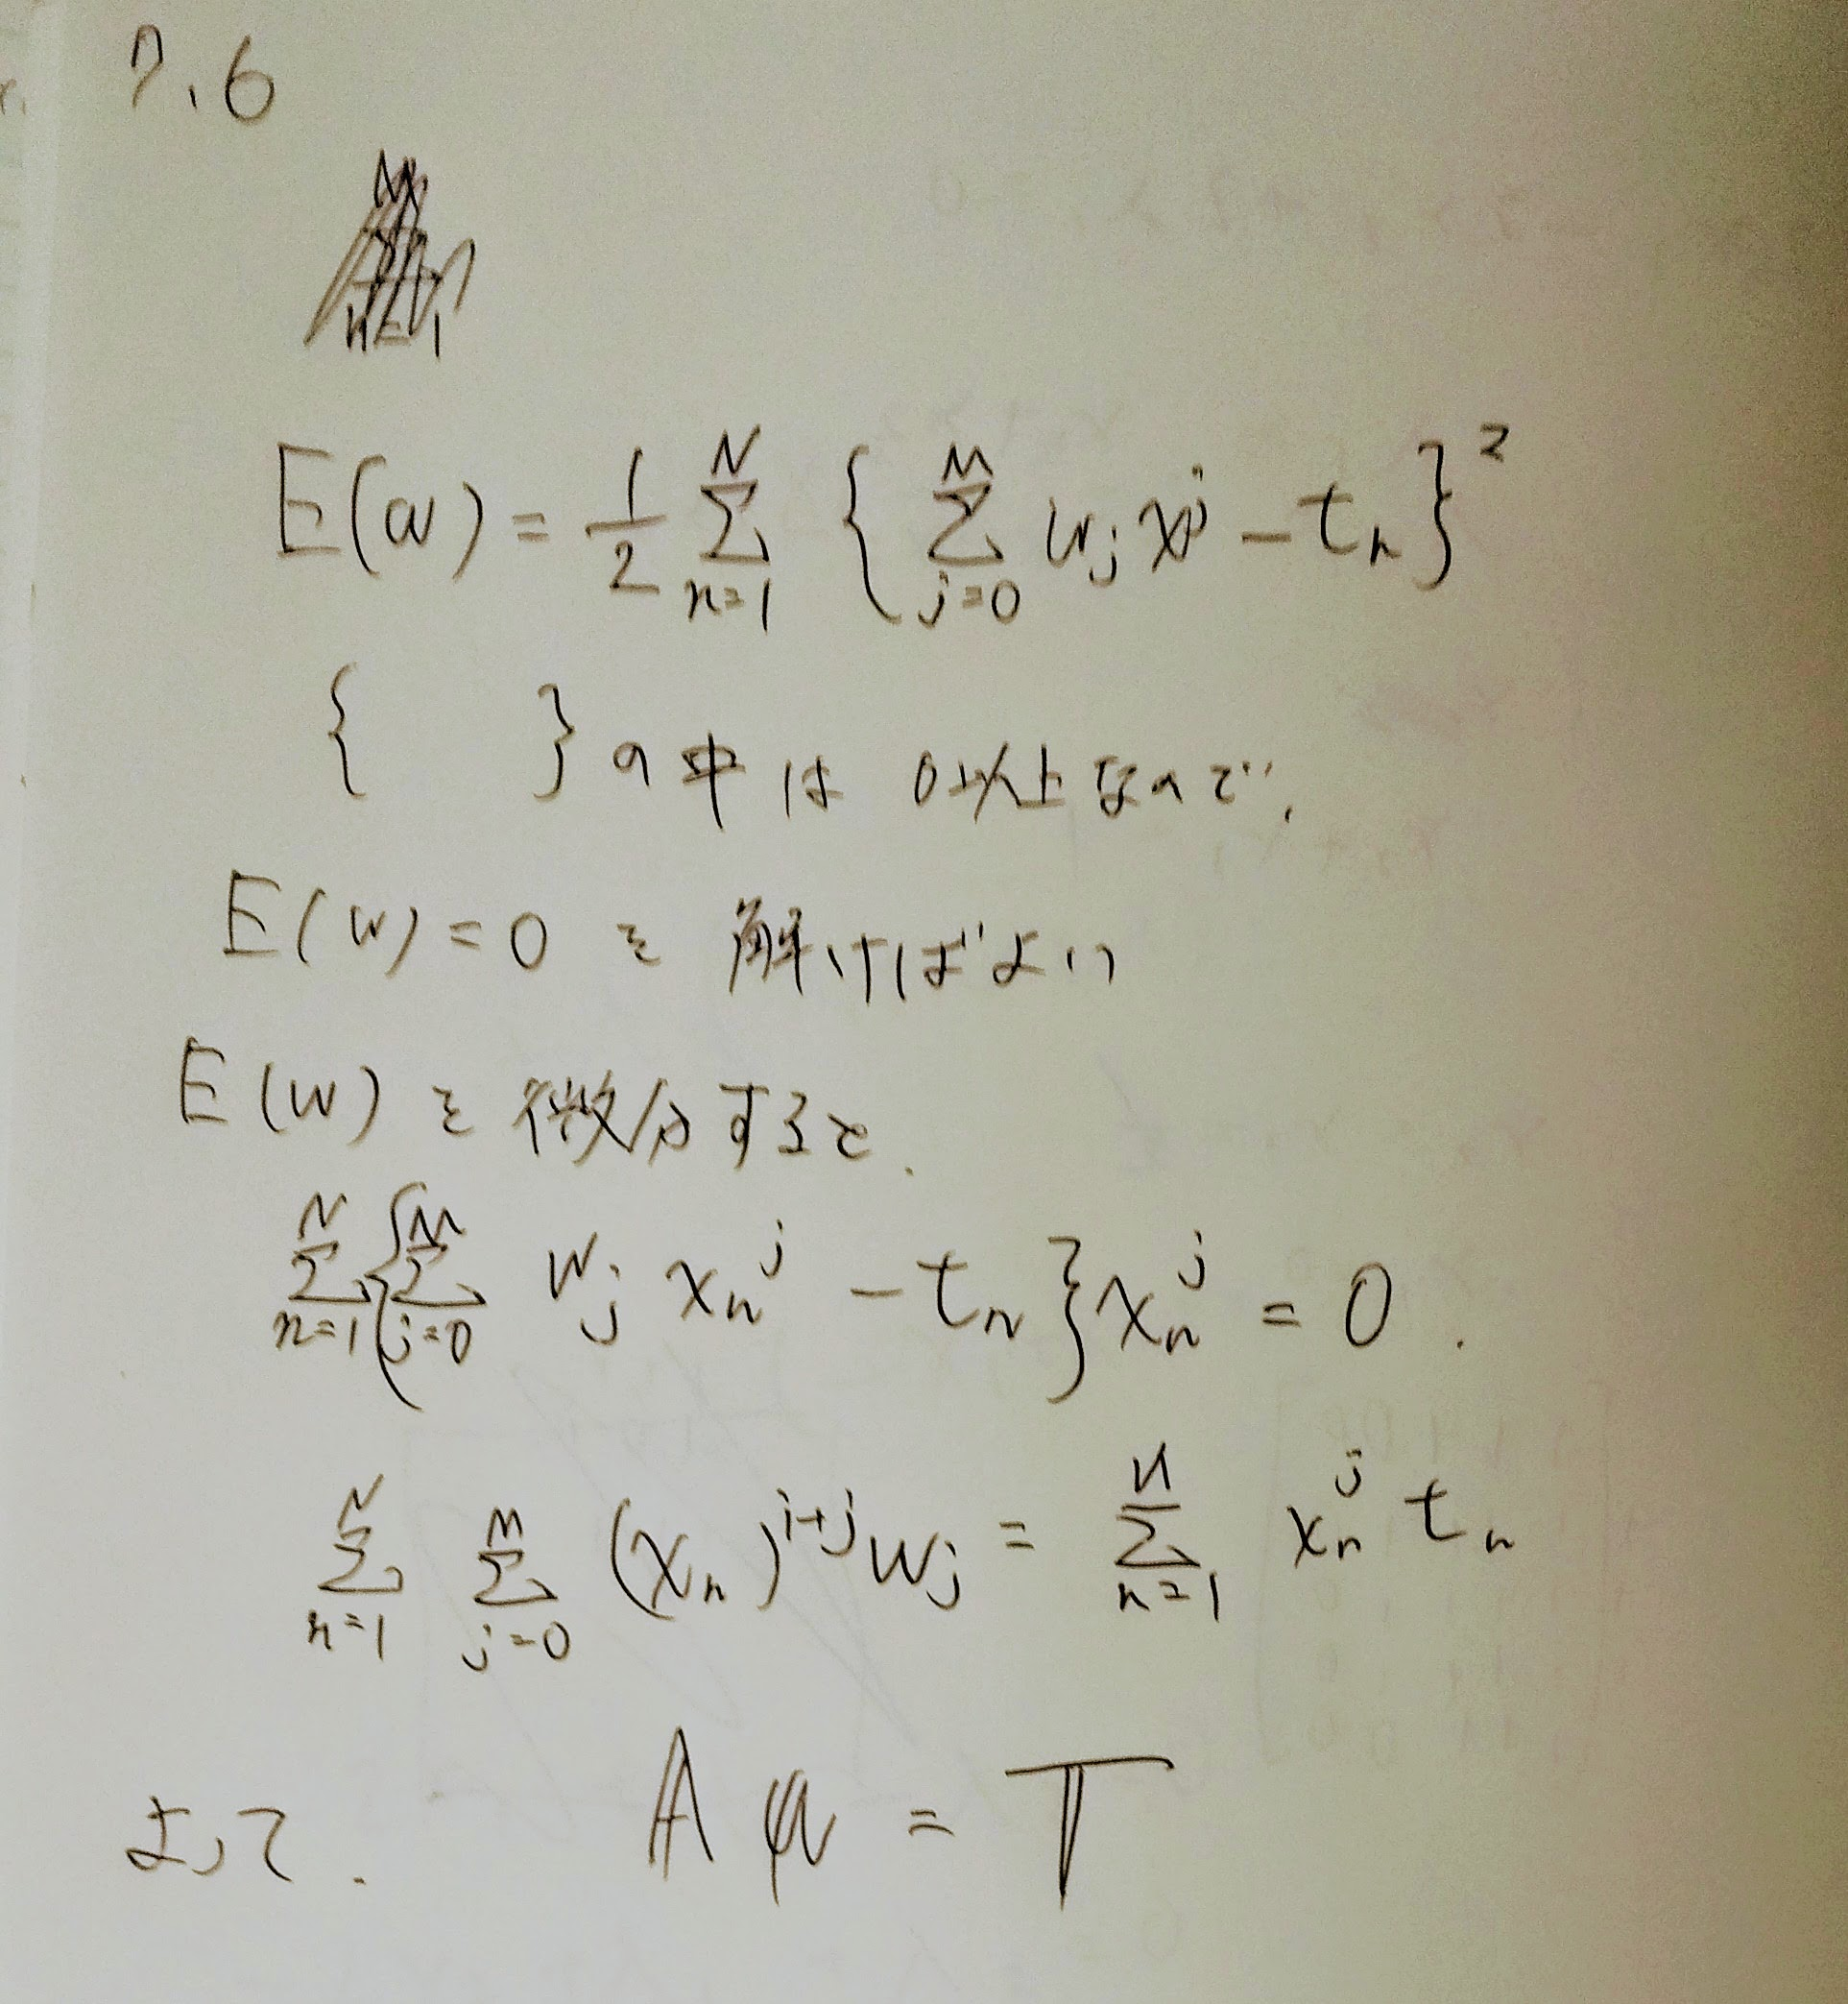 7.6
E(w) = 1/2 Σ_{n=1}^{N} { Σ_{j=0}^{M} w_j x^j - t_n }^2
{ } の中は 0以上なので、
E(w) = 0 を 解けばよい
E(w) を 微分すると、
Σ_{n=1}^{N} { Σ_{j=0}^{M} w_j x_n^j - t_n } x_n^j = 0 .
Σ_{n=1}^{N} Σ_{j=0}^{M} (x_n)^{i+j} w_j = Σ_{n=1}^{N} x_n^j t_n
よって、 A w = T